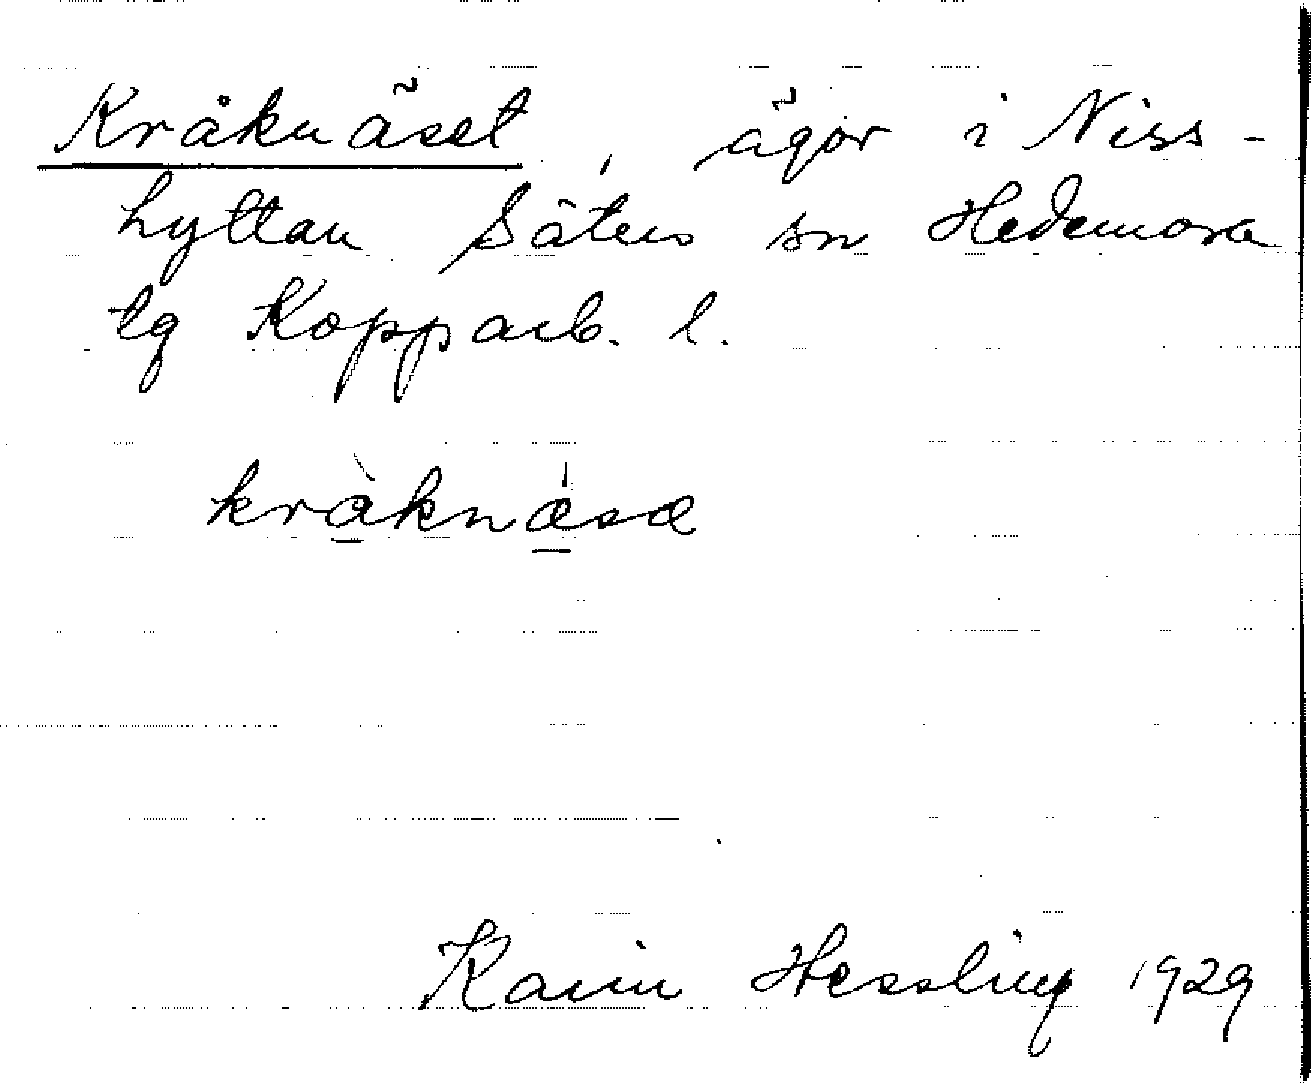 Kråknäset, ägor i Niss-
hyttan Säters sn Hedemora
tg Kopparb. l.
kràknǽsæ
Karin Hessling 1929